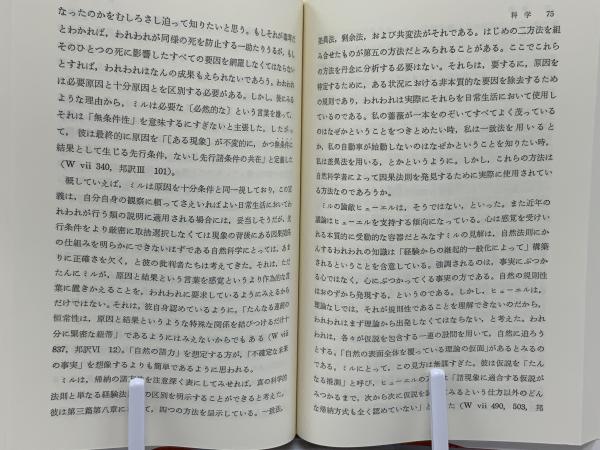 なったのかをむしろさし迫って知りたいと思う。もしそれが
とわかれば，われわれが同様の死を防止する一助たりうるが，もし
そのひとつの死に影響したすべての要因を網羅しなくてはならない
とすれば，われわれはなんの成果もえられないであろう。われわれ
は必要原因と十分原因とを区別する必要がある。しかし，
ような理由から，ミルは必要な〔必然的な〕という言葉を嫌って，
それは「無条件性」を意味するにすぎないと主張した。したがっ
て，彼は最終的に原因を「〔ある現象〕が不変的に，かつ無条件に
結果として生じる先行条件，ないし先行諸条件の共在」と定義した
(W vii 340, 邦訳Ⅲ 101)。
概していえば，ミルは原因を十分条件と同一視しており，この定
義は，自分自身の観察に頼ってさえいればよい日常生活においてわ
れわれが行う類の説明に適用される場合には，妥当しそうだが，先
行条件をより厳密に取捨選択しなくては現象の背後にある因果関係
の仕組みを明らかにできないはずである自然科学にとっては，あま
りに正確さを欠く，と彼の批判者たちは考えてきた。それは，ただ
たんにミルが，原因と結果という言葉を感覚というより作為的な言
葉に置きかえることを，われわれに要求しているようにみえるから
だけではない。それは，彼自身認めているように，「たんなる連続の
恒常性は，原因と結果というような特殊な関係を結びつけるだけ十
分に緊密な紐帯」であるようにはみえないからでもある (W vii
837, 邦訳Ⅵ 12)。「自然の諸力」を想定する方が，「不確定な未来
の事実」を想像するよりも簡単であるように思われる。
ミルは，帰納の諸方法を注意深く表にしてみせれば，真の科学的
法則と単なる経験法則との区別を明示することができると考えた。
彼は第三篇第八章において，四つの方法を提示している。一致法，
科 学 75
差異法，剰余法，および共変法がそれである。はじめの二方法を組
み合せたものが第五の方法だとみられることがある。ここでこれら
の方法を丹念に分析する必要はない。それらは，要するに，原因を
特定するために，ある状況における非本質的な要因を除去するため
の規則であり，われわれは実際にそれらを日常生活において使用し
ているのである。私の薔薇が一本をのぞいてすべてよく茂っている
のはなぜかということをつきとめたい時，私は一致法を用いると
か，私の自動車が始動しないのはなぜかということを知りたい時，
私は差異法を用いる，とかいうように。しかし，これらの方法は
自然科学者によって因果法則を発見するために実際に使用されてい
る方法なのであろうか。
ミルの論敵ヒューエルは，そうではない，といった。また近年の
議論はヒューエルを支持する傾向になっている。心は感覚を受けい
れる本質的に受動的な容器だとみなすミルの見解は，自然法則にか
んするわれわれの知識は「経験からの継起的一般化によって」構築
されるということを含意している。強調されるのは，事実にぶつか
る心ではなく，心にぶつかってくる事実の方である。自然の規則性
はおのずから発現する，というのである。しかし，ヒューエルは，
理論なしでは，それが規則性であることを理解できないのだから，
われわれはまず理論から出発しなくてはならない，と考えた。われ
われは，各々が仮説を包含する一連の設問を用いて，自然に迫ろう
とする。「自然の表面全体を覆っている理論の仮面」があるとみるの
である。ミルにとって，この見方は無謀すぎた。彼は仮説を「たん
なる推測」と呼び，ヒューエルの方は「諸現象に適合する仮説が
みつかるまで，次から次に仮説を みるという仕方以外のどん
な帰納方式も全く認めていない」 た (W vii 490, 503, 邦